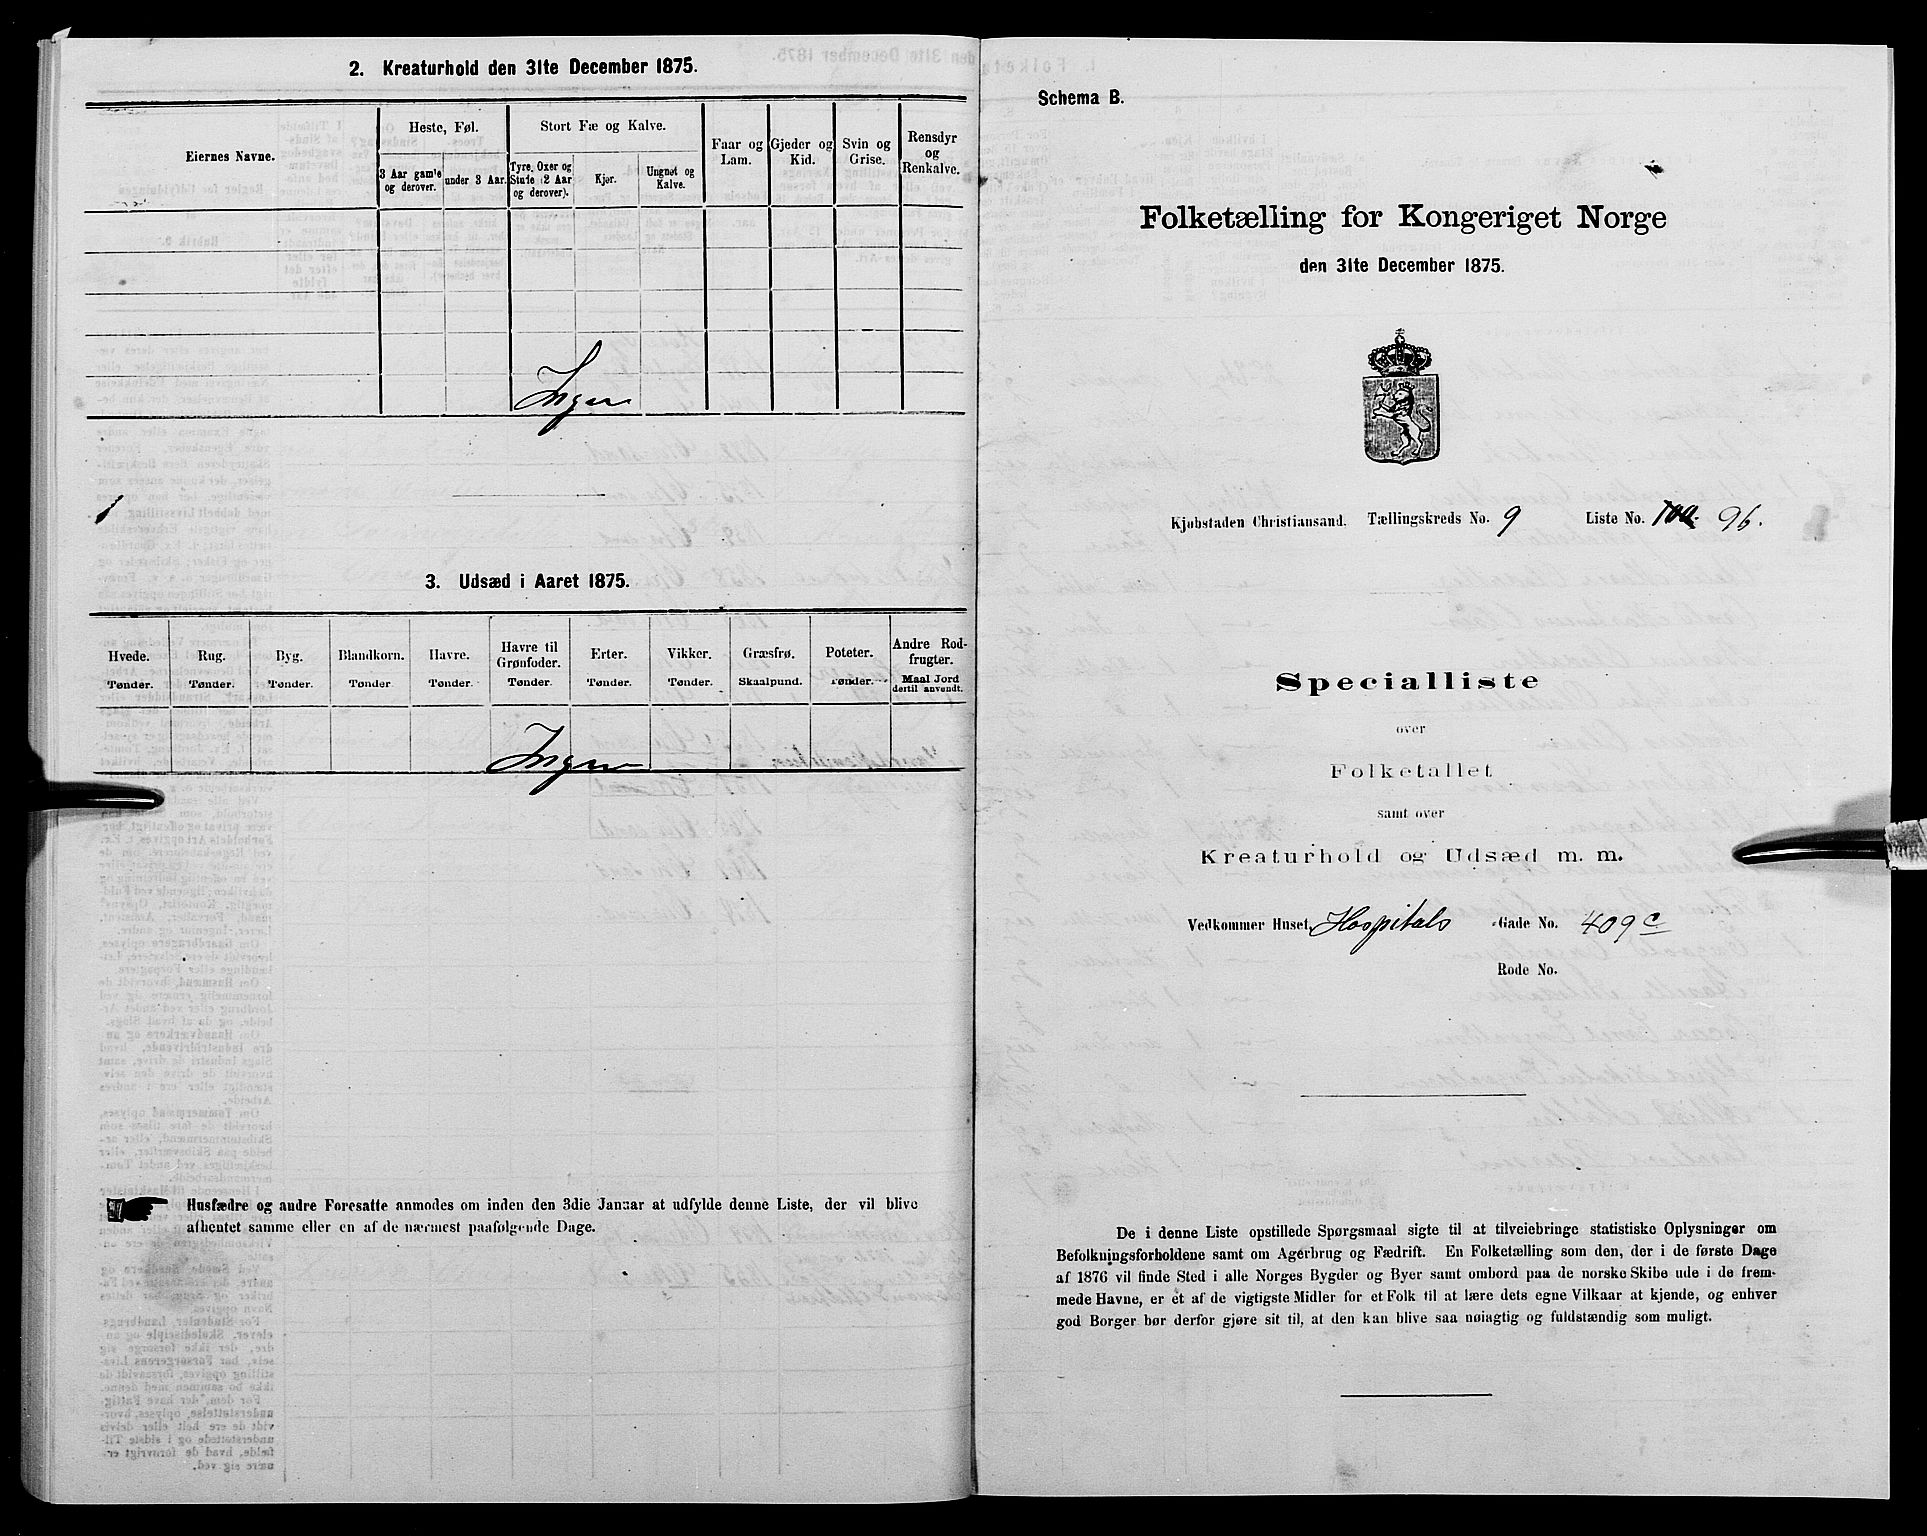 2. Kreaturhold den 31te December 1875.
Eiernes Navne.
Heste, Føl.
3 Aar gam'e og derover.
under 3 Aar.
Stort Fæ og Kalve.
Tyre, Oxer og Stute (2 Aar og derover).
Kjør.
Ungnøt og Kalve.
Faar og Lam.
Gjeder og Kid.
Svin og Grise.
Rensdyr og Renkalve.
Ingen
3. Udsæd i Aaret 1875.
Hvede. Tønder.
Rug. Tønder.
Byg. Tønder.
Blandkorn. Tønder
Havre. Tønder
Havre til Grønfoder. Tønder
Erter. Tønder.
Vikker. Tønder.
Græsfrø. Skaalpund.
Poteter. Tønder.
Andre Rodfrugter. Maal Jord dertil anvendt.
Ingen
Husfædre og andre Foresatte anmodes om inden den 3die Januar at udfylde denne Liste, der vil blive
afhentet samme eller en af de nærmest paafølgende Dage.
Schema B.
Folketælling for Kongeriget Norge
den 31te December 1875.
Kjøbstaden Christiansand. Tællingskreds No. 9 Liste No. 96.
Specialliste
over
Folketallet
samt over
Kreaturhold og Udsæd m. m.
Vedkommer Huset, Hospitals Gade No. 409 c
Rode No.
De i denne Liste opstillede Spørgsmaal sigte til at tilveiebringe statistiske Oplysninger om
Befolkningsforholdene samt om Agerbrug og Fædrift. En Folketælling som den, der i de første Dage
af 1876 vil finde Sted i alle Norges Bygder og Byer samt ombord paa de norske Skibe ude i de frem-
mede Havne, er et af de vigtigste Midler for et Folk til at lære dets egne Vilkaar at kjende, og enhver
god Borger bør derfor gjøre sit til, at den kan blive saa nøiagtig og fuldstændig som muligt.